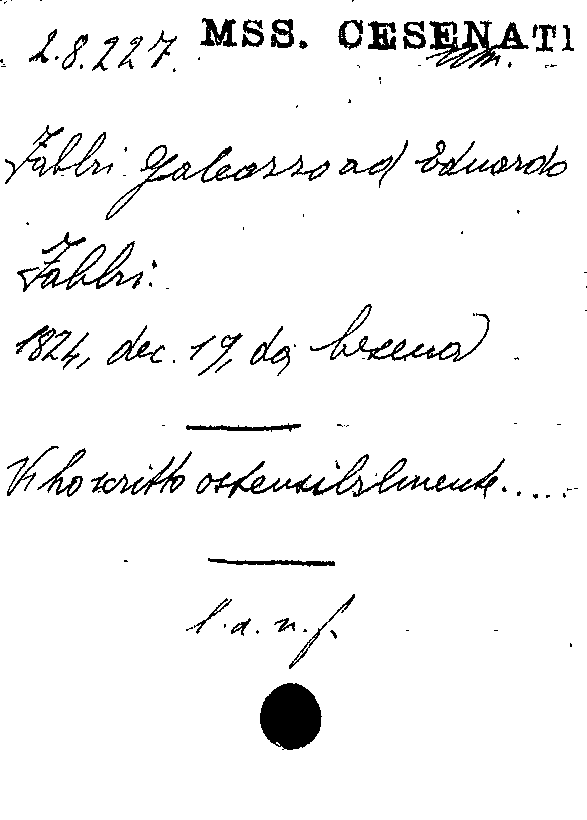 MSS. CESENATI
2.8.227.
Fabbri Galeazzo ad Eduardo
Fabbri.
1824, dec. 19, da Cesena
Vi ho scritto ostensibilmente.....
l. a. n. f.